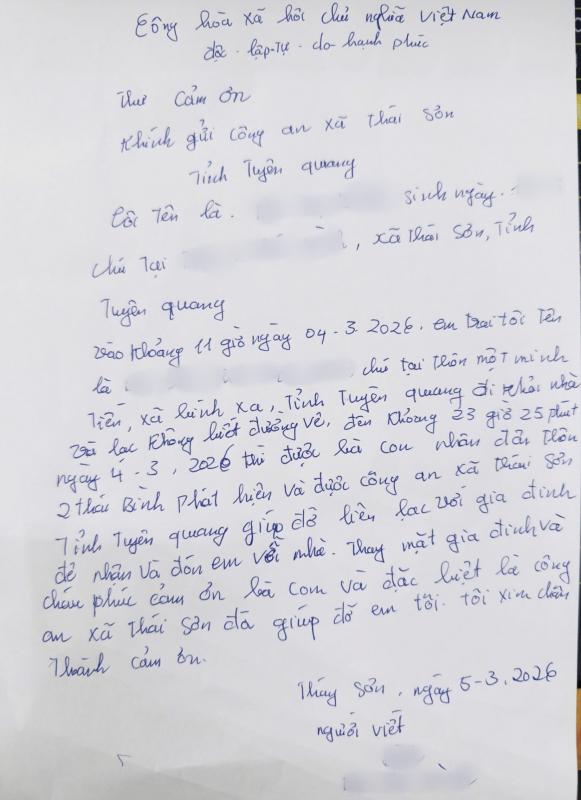 Cộng hòa xã hội chủ nghĩa Việt Nam
độc - lập - Tự - do - hạnh phúc
Thư cảm ơn
Khính gửi công an xã Thái Sơn
Tỉnh Tuyên quang
Tôi Tên là. sinh ngày.
chú Tại , xã Thái Sơn, Tỉnh
Tuyên quang
vào Khoảng 11 giờ ngày 04-3.2026. em trai tôi Tên
là chú tại thôn một minh
Tiến, xã bình xa, Tỉnh Tuyên quang đi khỏi nhà
và lạc Không biết đường về, đến Khoảng 23 giờ 25 phút
ngày 4-3, 2026 thì được bà con nhân dân thôn
2 thái Bình phát hiện và được công an xã thái Sơn
Tỉnh Tuyên quang giúp đỡ liên lạc với gia đình
để nhận và đón em về nhà. Thay mặt gia đình và
cảm ơn bà con và đặc biệt là công
an xã thái Sơn đã giúp đỡ em tôi. tôi xin chân
Thành cảm ơn.
Tháy Sơn, ngày 5-3.2026
người viết